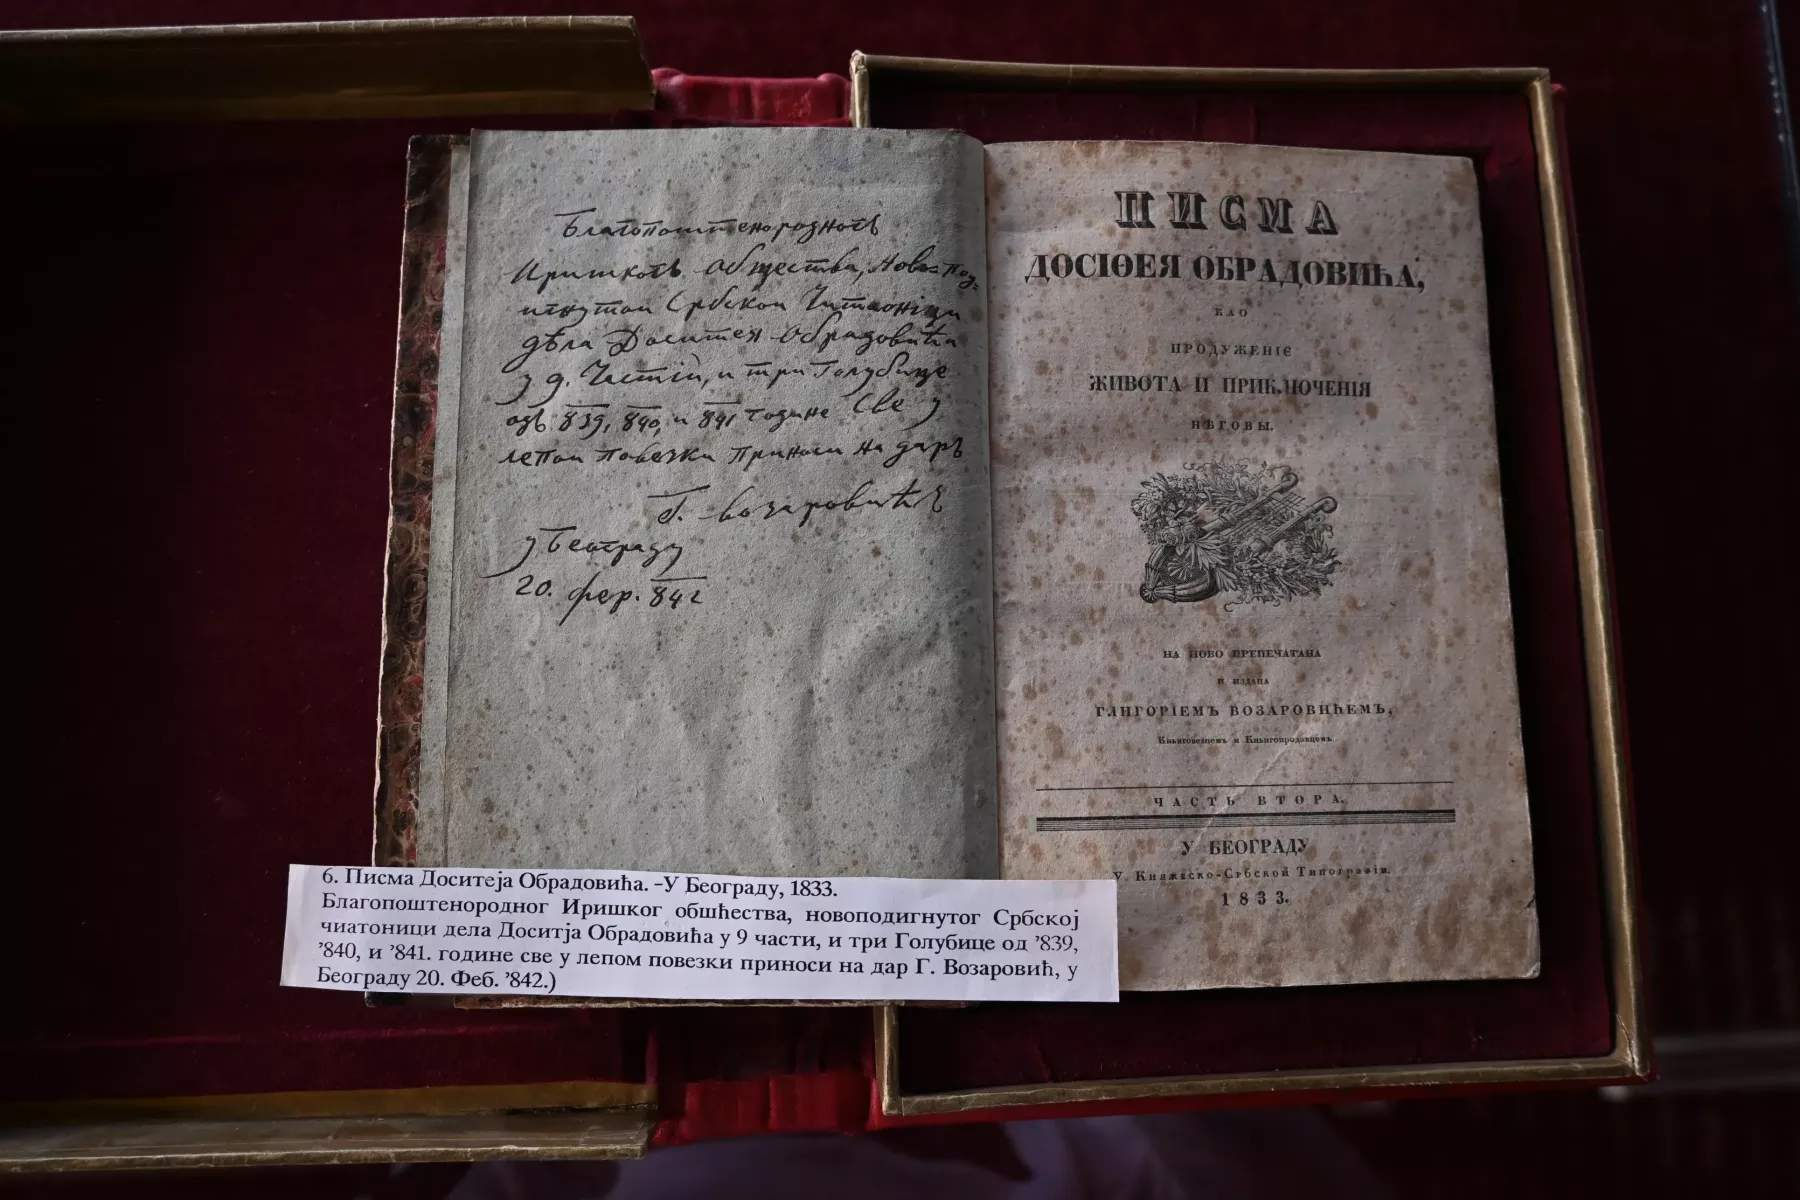 Благопоштенородногъ
Иришкогъ общества, Ново-под-
игнутои Србскои Читаоници
дѣла Доситея Обрадовића
у 9. Частій, и три Голубице
одъ 839, 840, и 841 године све у
лепои повезки приноси на даръ
Г. Возаровићъ
у Београду
20. фер. 842
ПИСМА
ДОСІѲЕЯ ОБРАДОВИЋА,
КАО
ПРОДУЖЕНІЄ
ЖИВОТА И ПРИКЛЮЧЕНІЯ
НѢГОВЫ.
НА НОВО ПРЕПЕЧАТАНА
И ИЗДАНА
ГЛИГОРІЕМЪ ВОЗАРОВИЋЕМЪ,
Књиговезцемъ и Књигопродавцемъ.
ЧАСТЬ ВТОРА.
У БЕОГРАДУ
У Княжеско-Србской Типографіи.
1833.
6. Писма Доситеја Обрадовића. –У Београду, 1833.
Благопоштенородног Иришког обшћества, новоподигнутог Србској
чиатоници дела Доситја Обрадовића у 9 части, и три Голубице од ’839,
’840, и ’841. године све у лепом повезки приноси на дар Г. Возаровић, у
Београду 20. Феб. ’842.)